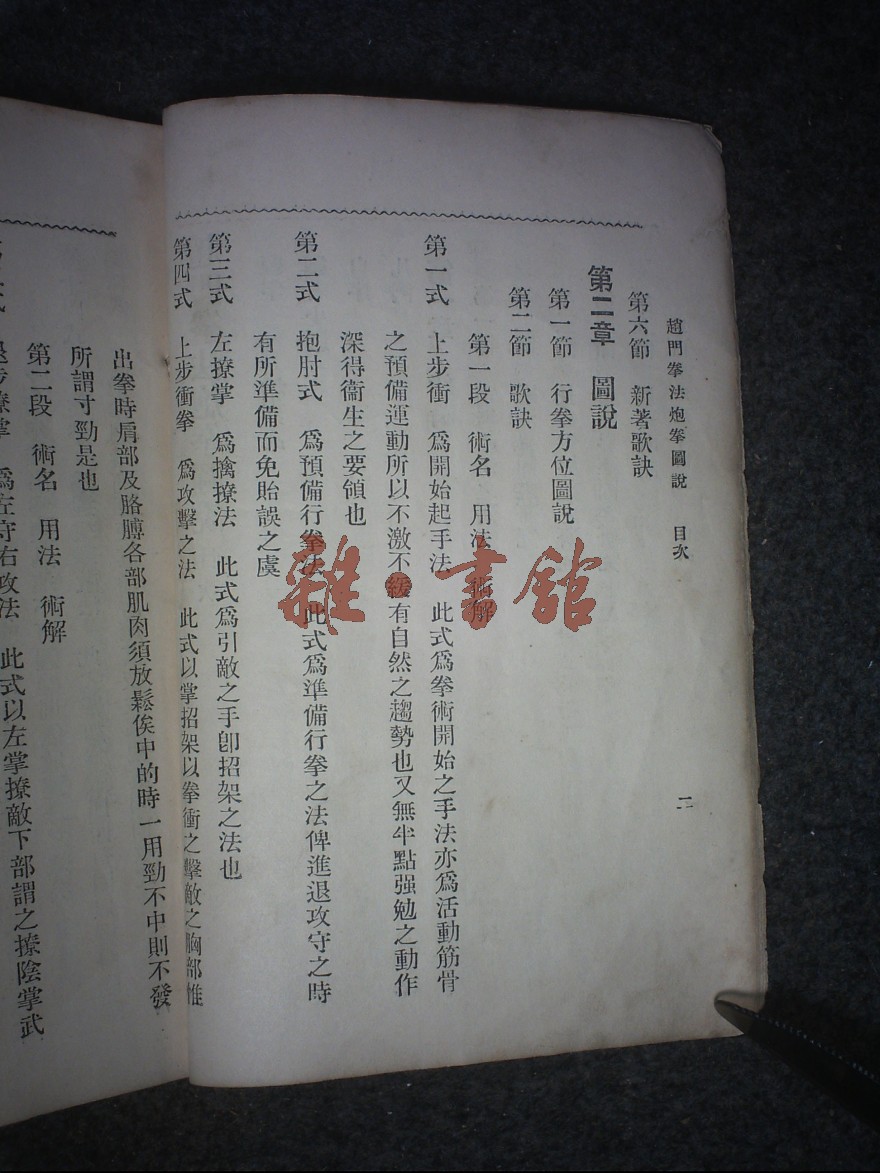 趙門拳法炮拳圖說　目次　二
第六節　新著歌訣
第二章　圖說
第一節　行拳方位圖說
第二節　歌訣
第一段　術名　用法　術解
第一式　上步衝　爲開始起手法　此式爲拳術開始之手法亦爲活動筋骨
之預備運動所以不激不緩有自然之趨勢也又無半點强勉之動作
深得衞生之要領也
第二式　抱肘式　爲預備行拳法　此式爲準備行拳之法俾進退攻守之時
有所準備而免貽誤之虞
第三式　左撩掌　爲擒撩法　此式爲引敵之手卽招架之法也
第四式　上步衝拳　爲攻擊之法　此式以掌招架以拳衝之擊敵之胸部惟
出拳時肩部及胳膊各部肌肉須放鬆俟中的時一用勁不中則不發
所謂寸勁是也
第二段　術名　用法　術解
步撩掌　爲左守右攻法　此式以左掌撩敵下部謂之撩陰掌武
雜·書館